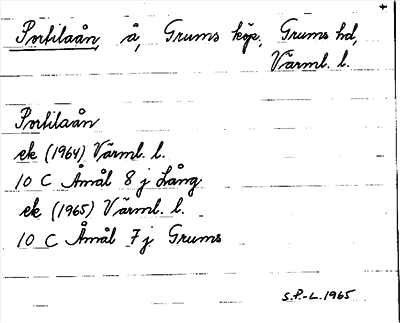 Portilaån, å, Grums köp. Grums hd,
Värml. l.
Portilaån
ek (1964) Värml. l.
10 C Åmål 8 j Lång
ek (1965) Värml. l.
10 C Åmål 7 j Grums
S.P.-L. 1965